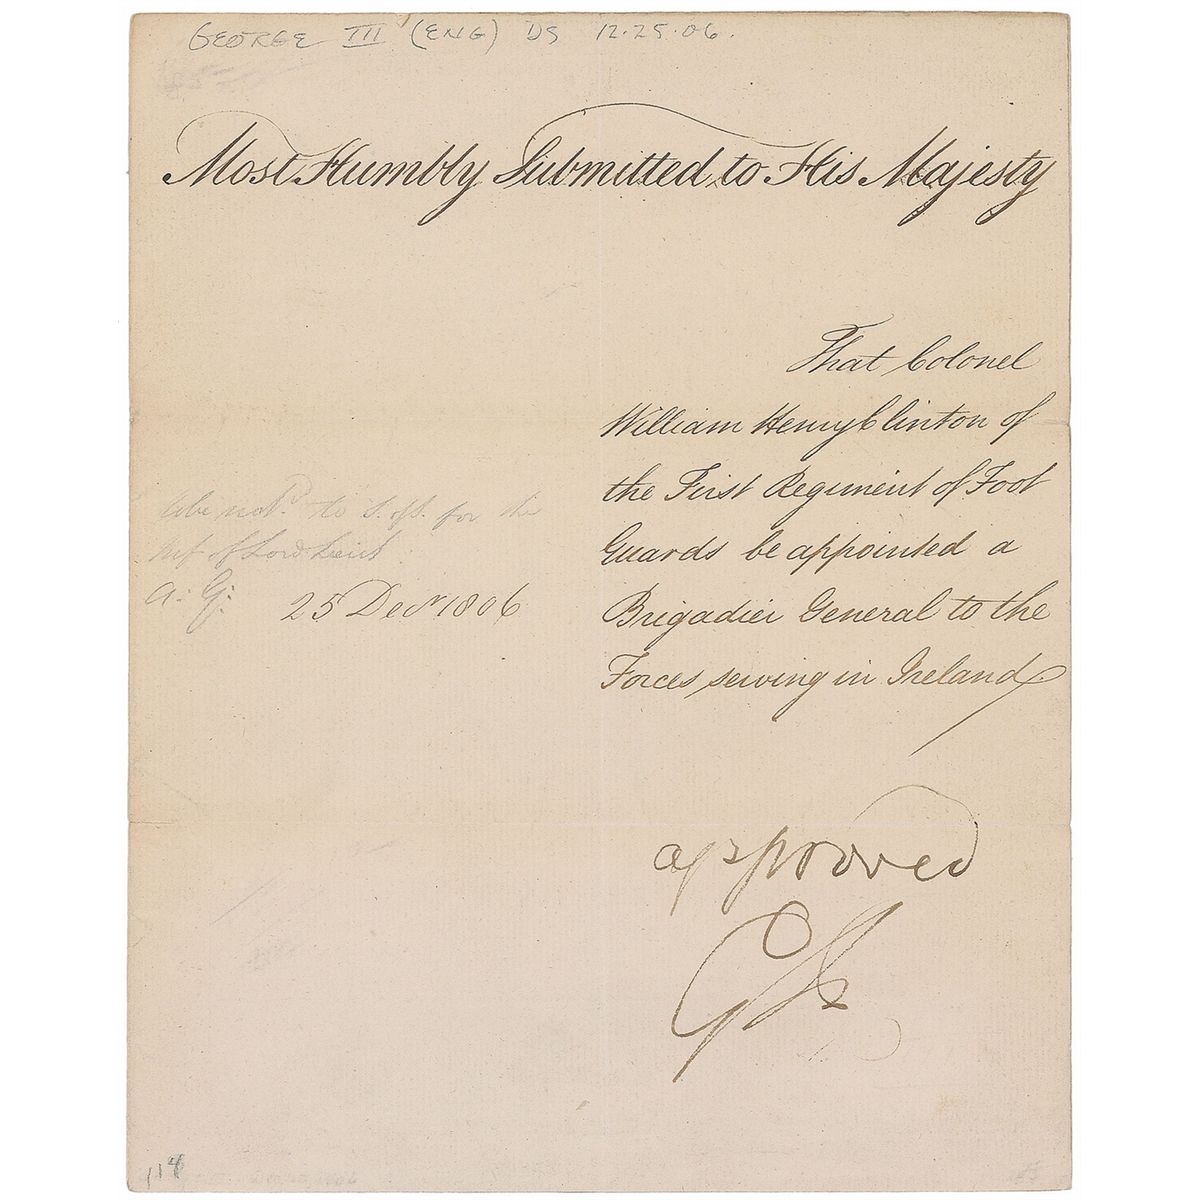 GEORGE III (ENG) DS 12.25.06.
Most Humbly Submitted to His Majesty
That Colonel
William Henry Clinton of
the First Regiment of Foot
Guards be appointed a
Brigadier General to the
Forces serving in Ireland.
to S. of S. for the
of Lord Lieut
A: G:
25 Decr 1806
approved
GR
114